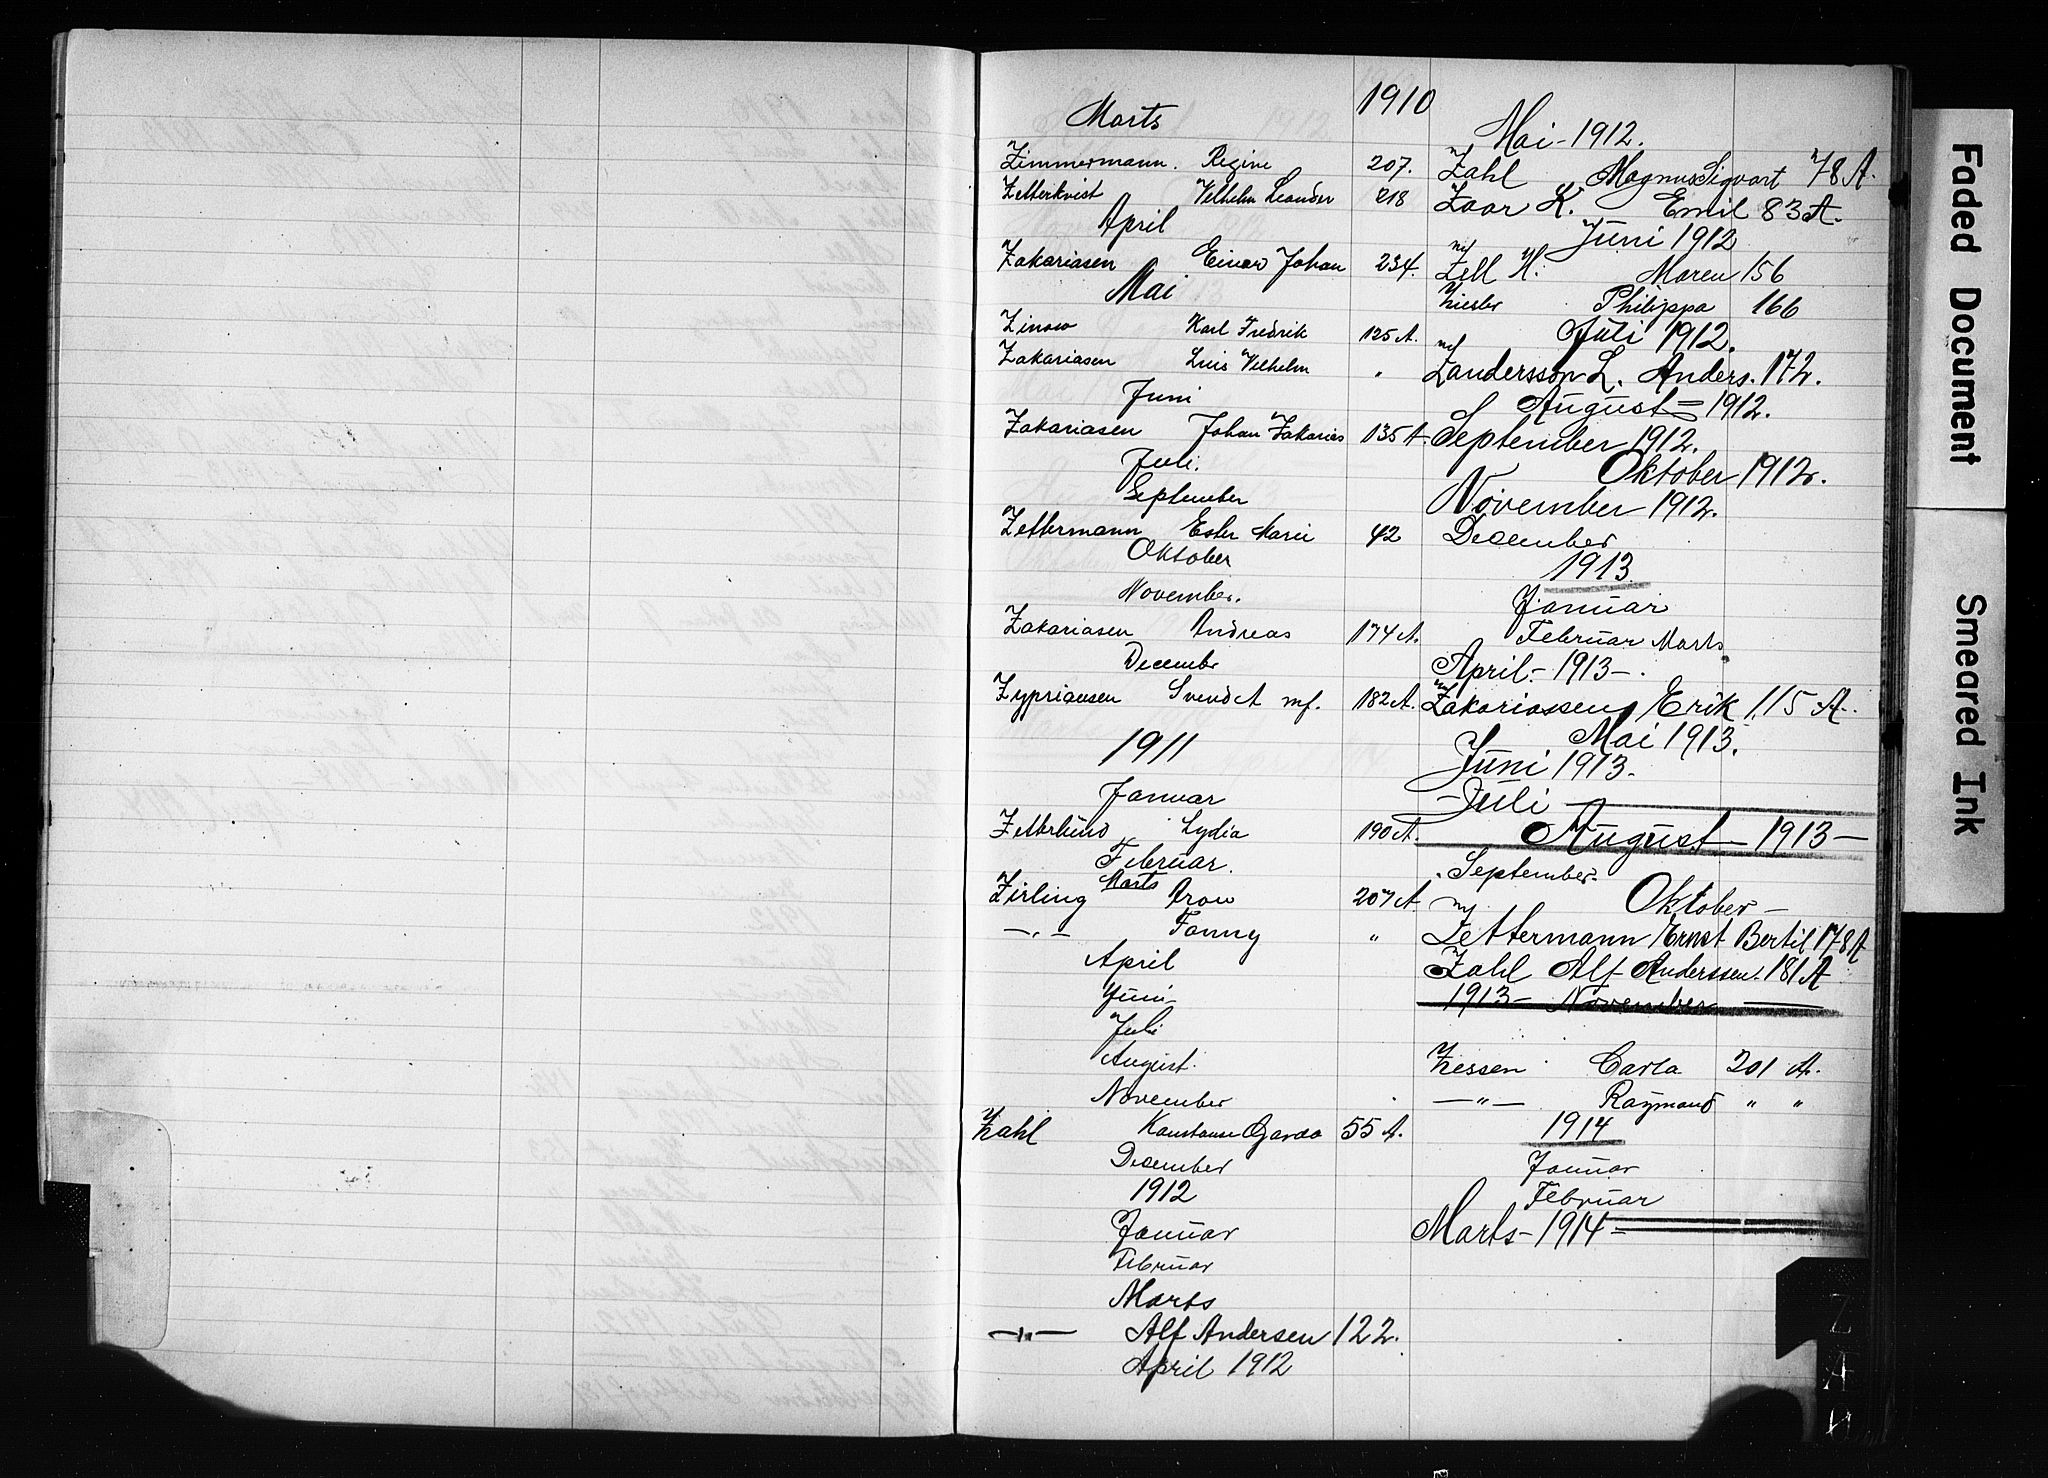 1910
Marts
Zimmermann. Regine 207.
Zetterkvist Vilhelm Leander 218
April
Zakariasen Einar Johan 234.
Mai
Zinow Karl Fredrik 125 A.
Zakariasen Luis Vilhelm "
Juni
Zakariasen Johan Zakarias 135 A.
Juli.
September
Zettermann Ester Marie 42
Oktober
November.
Zakariasen Andreas 174 A.
December
Zypriansen Svend A mf. 182 A.
1911
Januar
Zetterlund Lydia 190 A.
Februar.
Marts
Zirling Aron 207 A
—"— Fanny "
April
Juni
Juli
August.
November
Zahl Konstanse Gjarda 55 A.
December
1912
Januar
Februar
Marts
—"— Alf Andersen 122.
April 1912
Mai - 1912.
Zahl Magnus Sigvart 78 A.
Zaar K. Emil 83 A.
Juni 1912
mf Zell H. Maren 156
Ziesler Philippa 166
Juli 1912.
mf
Zandersson L. Anders. 172.
August = 1912.
September 1912.
Oktober 1912.
November 1912.
December
1913
Januar
Februar Marts
April - 1913 -.
Zakariassen Erik 115 A.
Mai 1913.
Juni 1913.
- Juli -
August - 1913 -
September -
Oktober -
Zettermann Ernst Bertil 178 A
Zahl Alf Anderssen. 181 A
1913 - November
Ziessen Carla 201 A.
—"— Raymond " "
1914
Januar
Februar
Marts - 1914 =
Faded Document
Smeared Ink
Z